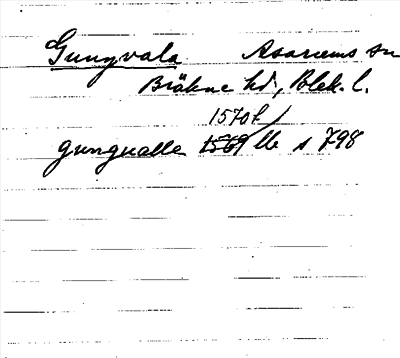 Gungvala Asarums sn
Bräkne hd, Blek. l.
1570 f/
gungualle 1569 lb s 798